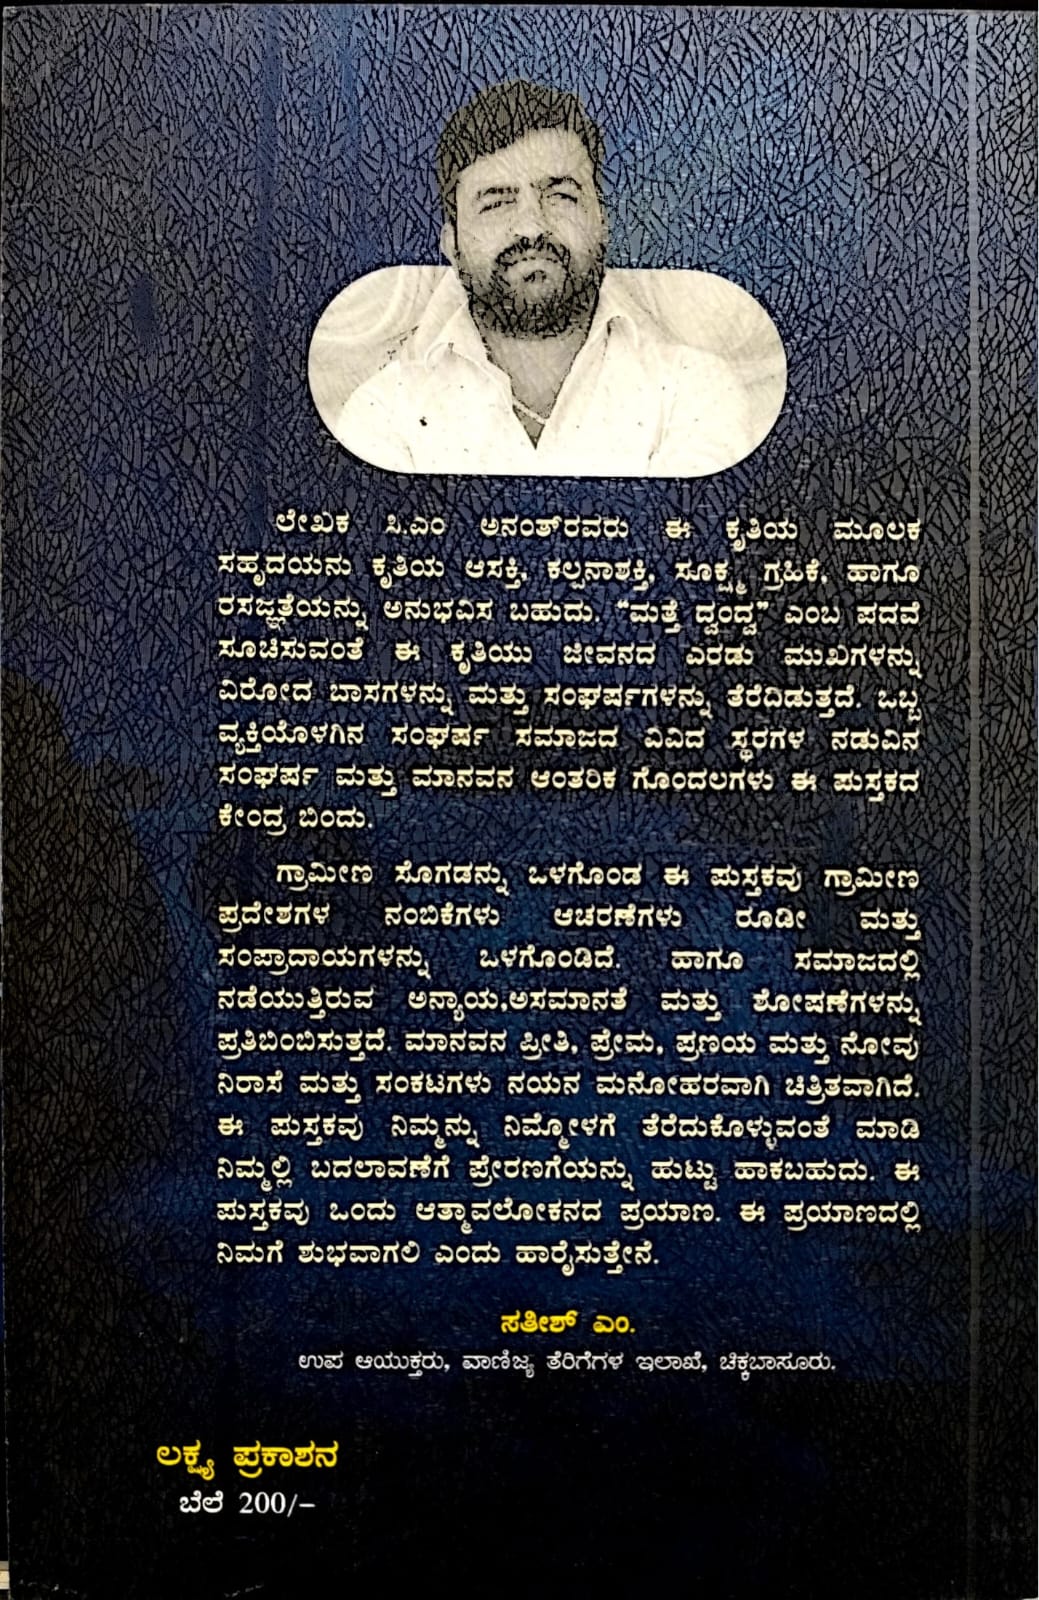 ಲೇಖಕ ಸಿ.ಎಂ ಅನಂತ್‌ರವರು ಈ ಕೃತಿಯ ಮೂಲಕ
ಸಹೃದಯನು ಕೃತಿಯ ಆಸಕ್ತಿ, ಕಲ್ಪನಾಶಕ್ತಿ, ಸೂಕ್ಷ್ಮ ಗ್ರಹಿಕೆ, ಹಾಗೂ
ರಸಜ್ಞತೆಯನ್ನು ಅನುಭವಿಸ ಬಹುದು. “ಮತ್ತೆ ದ್ವಂದ್ವ” ಎಂಬ ಪದವೆ
ಸೂಚಿಸುವಂತೆ ಈ ಕೃತಿಯು ಜೀವನದ ಎರಡು ಮುಖಗಳನ್ನು
ವಿರೋದ ಬಾಸಗಳನ್ನು ಮತ್ತು ಸಂಘರ್ಷಗಳನ್ನು ತೆರೆದಿಡುತ್ತದೆ. ಒಬ್ಬ
ವ್ಯಕ್ತಿಯೊಳಗಿನ ಸಂಘರ್ಷ ಸಮಾಜದ ವಿವಿದ ಸ್ಥರಗಳ ನಡುವಿನ
ಸಂಘರ್ಷ ಮತ್ತು ಮಾನವನ ಆಂತರಿಕ ಗೊಂದಲಗಳು ಈ ಪುಸ್ತಕದ
ಕೇಂದ್ರ ಬಿಂದು.
ಗ್ರಾಮೀಣ ಸೊಗಡನ್ನು ಒಳಗೊಂಡ ಈ ಪುಸ್ತಕವು ಗ್ರಾಮೀಣ
ಪ್ರದೇಶಗಳ ನಂಬಿಕೆಗಳು ಆಚರಣೆಗಳು ರೂಡೀ ಮತ್ತು
ಸಂಪ್ರಾದಾಯಗಳನ್ನು ಒಳಗೊಂಡಿದೆ. ಹಾಗೂ ಸಮಾಜದಲ್ಲಿ
ನಡೆಯುತ್ತಿರುವ ಅನ್ಯಾಯ,ಅಸಮಾನತೆ ಮತ್ತು ಶೋಷಣೆಗಳನ್ನು
ಪ್ರತಿಬಿಂಬಿಸುತ್ತದೆ. ಮಾನವನ ಪ್ರೀತಿ, ಪ್ರೇಮ, ಪ್ರಣಯ ಮತ್ತು ನೋವು
ನಿರಾಸೆ ಮತ್ತು ಸಂಕಟಗಳು ನಯನ ಮನೋಹರವಾಗಿ ಚಿತ್ರಿತವಾಗಿದೆ.
ಈ ಪುಸ್ತಕವು ನಿಮ್ಮನ್ನು ನಿಮ್ಮೋಳಗೆ ತೆರೆದುಕೊಳ್ಳುವಂತೆ ಮಾಡಿ
ನಿಮ್ಮಲ್ಲಿ ಬದಲಾವಣೆಗೆ ಪ್ರೇರಣಗೆಯನ್ನು ಹುಟ್ಟು ಹಾಕಬಹುದು. ಈ
ಪುಸ್ತಕವು ಒಂದು ಆತ್ಮಾವಲೋಕನದ ಪ್ರಯಾಣ. ಈ ಪ್ರಯಾಣದಲ್ಲಿ
ನಿಮಗೆ ಶುಭವಾಗಲಿ ಎಂದು ಹಾರೈಸುತ್ತೇನೆ.
ಸತೀಶ್ ಎಂ.
ಉಪ ಆಯುಕ್ತರು, ವಾಣಿಜ್ಯ ತೆರಿಗೆಗಳ ಇಲಾಖೆ, ಚಿಕ್ಕಬಾಸೂರು.
ಲಕ್ಷ್ಯ ಪ್ರಕಾಶನ
ಬೆಲೆ 200/–